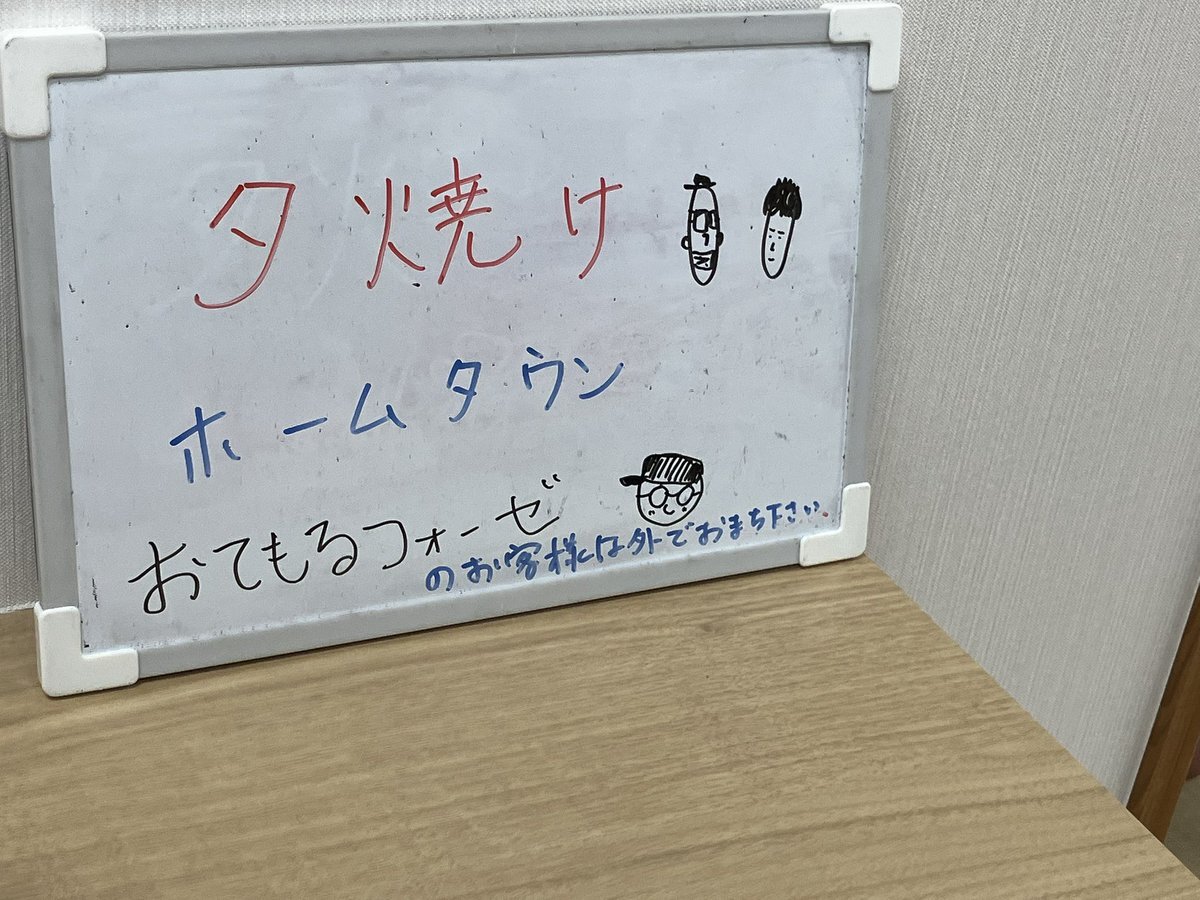 夕焼け
ホームタウン
おてもるフォーゼ
のお客様は外でおまち下さい.